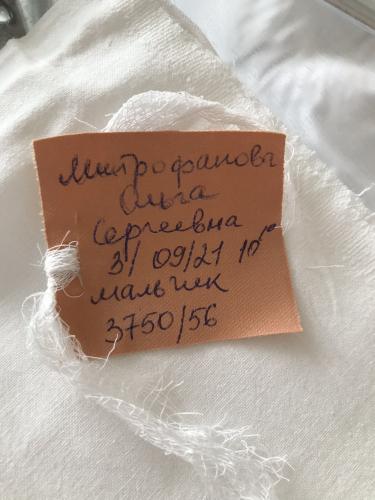 Митрофанова
Ольга
Сергеевна
3/ 09/21 10¹⁰
мальчик
3750/56